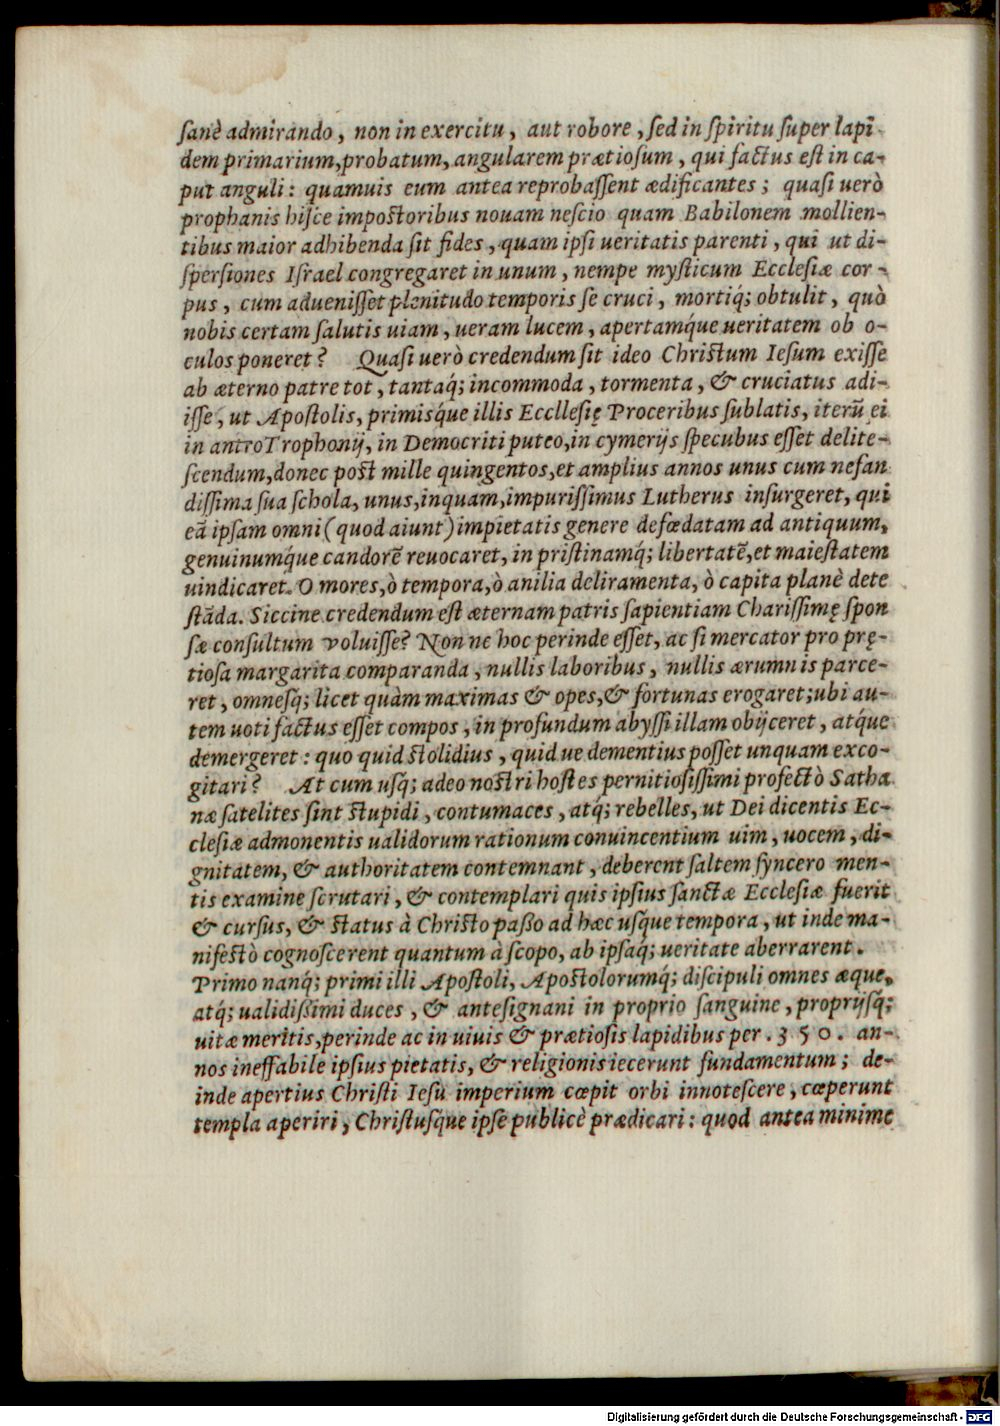 ſanè admirando, non in exercitu, aut robore, ſed in ſpiritu ſuper lapi-
dem primarium, probatum, angularem prætioſum, qui factus eſt in ca-
put anguli: quamuis eum antea reprobaſſent ædificantes; quaſi uerò
prophanis hiſce impoſtoribus nouam neſcio quam Babilonem mollien-
tibus maior adhibenda ſit fides, quam ipſi ueritatis parenti, qui ut di-
ſperſiones Iſrael congregaret in unum, nempe myſticum Eccleſiæ cor-
pus, cum adueniſſet plenitudo temporis ſe cruci, mortiq́; obtulit, quò
nobis certam ſalutis uiam, ueram lucem, apertamq́ue ueritatem ob o-
culos poneret? Quaſi uerò credendum ſit ideo Chriſtum Ieſum exiſſe
ab æterno patre tot, tantaq́; incommoda, tormenta, & cruciatus adi-
iſſe, ut Apoſtolis, primisq́ue illis Eccllesię Proceribus ſublatis, iterũ ei
in antro Trophonij, in Democriti puteo, in cymerijs ſpecubus eſſet delite-
ſcendum, donec poſt mille quingentos, et amplius annos unus cum nefan
diſſima ſua ſchola, unus, inquam, impuriſſimus Lutherus inſurgeret, qui
eã ipſam omni (quod aiunt) impietatis genere defœdatam ad antiquum,
genuinumq́ue candorẽ reuocaret, in priſtinamq́; libertatẽ, et maieſtatem
uindicaret. O mores, ò tempora, ò anilia deliramenta, ò capita planè dete
ſtãda. Siccine credendum eſt æternam patris ſapientiam Chariſſimę ſpon
ſæ conſultum voluiſſe? Non ne hoc perinde eſſet, ac ſi mercator pro prę-
tioſa margarita comparanda, nullis laboribus, nullis ærumnis parce-
ret, omneſq́; licet quàm maximas & opes, & fortunas erogaret; ubi au-
tem uoti factus eſſet compos, in profundum abyſſi illam obijceret, atq́ue
demergeret: quo quid ſtolidius, quid ue dementius poſſet unquam exco-
gitari? At cum uſq́; adeo noſtri hoſtes pernitioſiſſimi profectò Satha
næ ſatelites ſint ſtupidi, contumaces, atq́; rebelles, ut Dei dicentis Ec-
cleſiæ admonentis ualidorum rationum conuincentium uim, uocem, di-
gnitatem, & authoritatem contemnant, deberent ſaltem ſyncero men-
tis examine ſcrutari, & contemplari quis ipſius ſanctæ Eccleſiæ fuerit
& curſus, & ſtatus à Chriſto paßo ad hæc uſque tempora, ut inde ma-
nifeſtò cognoſcerent quantum à ſcopo, ab ipſaq́; ueritate aberrarent.
Primo nanq́; primi illi Apoſtoli, Apoſtolorumq́; diſcipuli omnes æque,
atq́; ualidißimi duces, & anteſignani in proprio ſanguine, proprijſq́;
uitæ meritis, perinde ac in uiuis & prætioſis lapidibus per .350. an-
nos ineffabile ipſius pietatis, & religionis iecerunt fundamentum; de-
inde apertius Chriſti Ieſu imperium cœpit orbi innoteſcere, cœperunt
templa aperiri, Chriſtuſq́ue ipſe publicè prædicari: quod antea minime
Digitalisierung gefördert durch die Deutsche Forschungsgemeinschaft - DFG